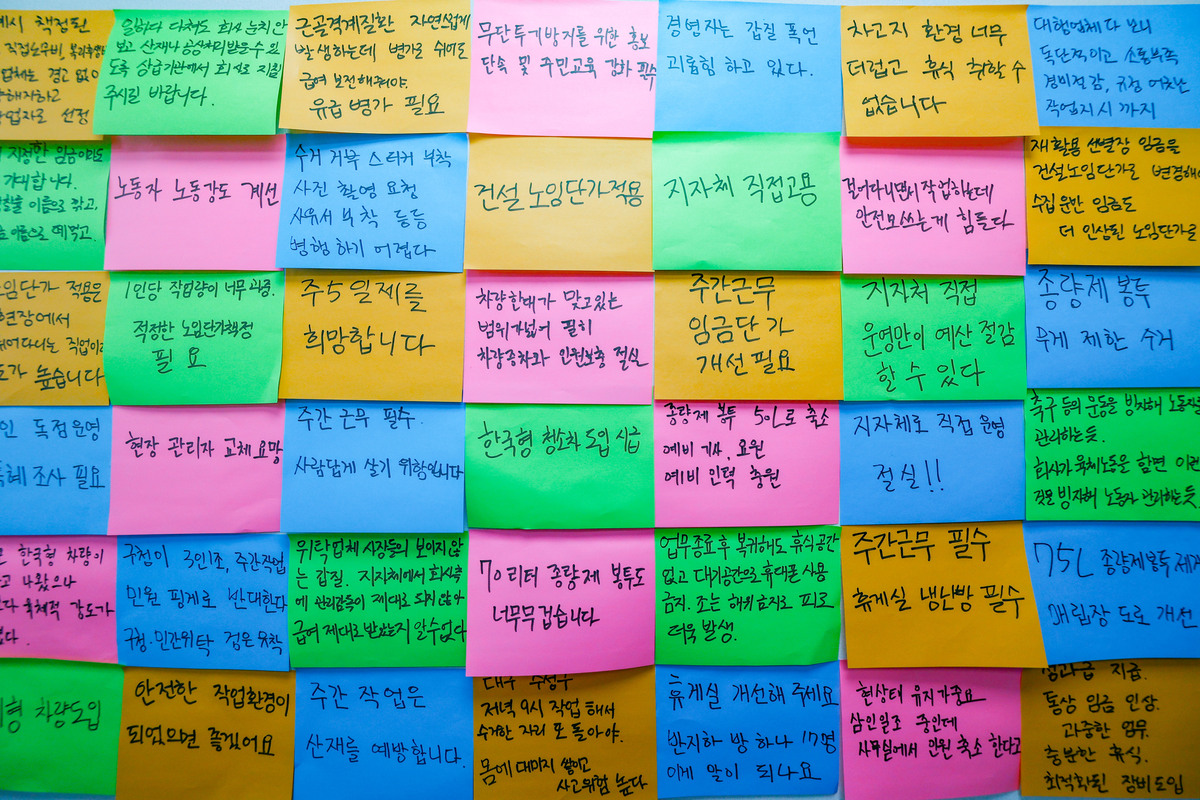 책정된
직접노무비, 복리후생비
업체는 경고 없이
선정
일하다 다쳐도 회사 눈치 안
보고 산재나 공상처리 받을 수 있
도록 상급기관에서 회사로 지침
주시길 바랍니다.
근골격계질환 자연스럽게
발생하는데 병가로 쉬어도
급여 보전해줘야.
유급병가 필요
무단투기방지를 위한 홍보
단속 및 구민교육 강화 필수
경영자는 갑질 폭언
괴롭힘 하고 있다.
차고지 환경 너무
더럽고 휴식 취할 수
없습니다
대행업체다 보니
독단적이고 소통부족
경비절감, 규정 어긋난
작업지시 까지
지정한 임금이라도
기대합니다.
이름으로 갖고,
이름으로 떼먹고.
노동자 노동강도 개선
수거 거부 스티커 부착
사진 촬영 요청
사유서 부착 등등
병행하기 어렵다
건설 노임단가적용
지자체 직접고용
걸어다니면서 작업하는데
안전모쓰는게 힘들다
재활용 선별장 임금을
건설노임단가로 변경해
수집운반 임금도
더 인상된 노임단가를
노임단가 적용은
현장에서
뛰어다니는 직업이라
높습니다
1인당 작업량이 너무 과중.
적정한 노임단가책정
필요
주5일제를
희망합니다
차량한대가 맞고있는
범위가넓어 필히
차량증차와 인원보충 절실
주간근무
임금단가
개선필요
지자체 직접
운영만이 예산 절감
할 수 있다
종량제 봉투
무게 제한 수거
독점운영
특혜 조사 필요
현장 관리자 교체요망
주간근무 필수.
사람답게 살기 위함입니다
한국형 청소차 도입 시급
종량제 봉투 50L로 축소
예비 기사, 요원
예비 인력 충원
지자체로 직접 운영
절실!!
축구 등의 운동을 빙자해 노동자를
관리하는듯.
회사가 육체노동을 할면 이런
것을 빙자해 노동자 관리하는듯.
한국형 차량이
나왔으나
육체적 강도가
구청이 3인1조, 주간작업
민원 핑계로 반대한다
구청·민간위탁 검은 유착
위탁업체 사장들의 보이지 않
는 갑질. 지자체에서 회사측
에 관리감독이 제대로 되지 않아
급여 제대로 받는지 알수없다
70리터 종량제 봉투도
너무무겁습니다
업무종료후 복귀해도 휴식공간
없고 대기공간으로 휴대폰 사용
금지. 조는 행위 금지로 피로
더욱 발생.
주간근무 필수
휴게실 냉난방 필수
75L 종량제봉투 제거
매립장 도로 개선
차량도입
안전한 작업환경이
되었으면 좋겠어요
주간 작업은
산재를 예방합니다.
대구 수성구
저녁 9시 작업 해서
수거한 자리 또 돌아야.
몸에 데미지 쌓이고
사고위험 높다
휴게실 개선해 주세요
반지하 방 하나 17명
이게 말이 되나요
현상태 유지가중요
삼인일조 중인데
사무실에서 인원 축소 한다고
성과급 지급.
통상 임금 인상.
과중한 업무.
충분한 휴식.
최적화된 장비도입